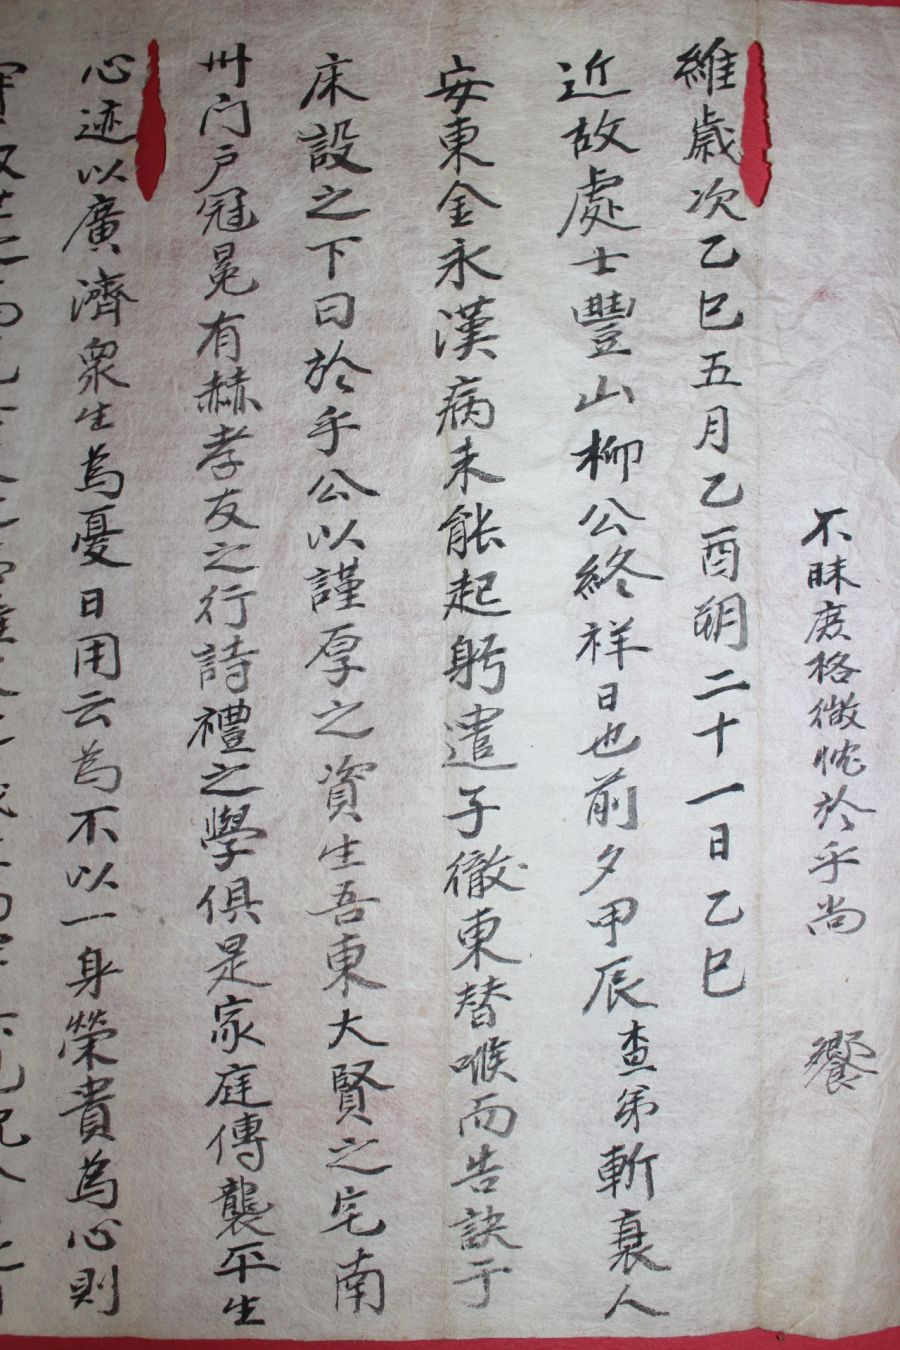 不昧庶格微忱於乎尚　饗
維歲次乙巳五月乙酉朔二十一日乙巳
近故處士豐山柳公終祥日也前夕甲辰査弟斬衰人
安東金永漢病未能起躬遣子徹東替喉而告訣于
床設之下曰於乎公以謹厚之資生吾東大賢之宅南
州门戶冠冕有赫孝友之行詩禮之學俱是家庭傳襲平生
心迹以廣濟衆生為憂日用云為不以一身榮貴為心則